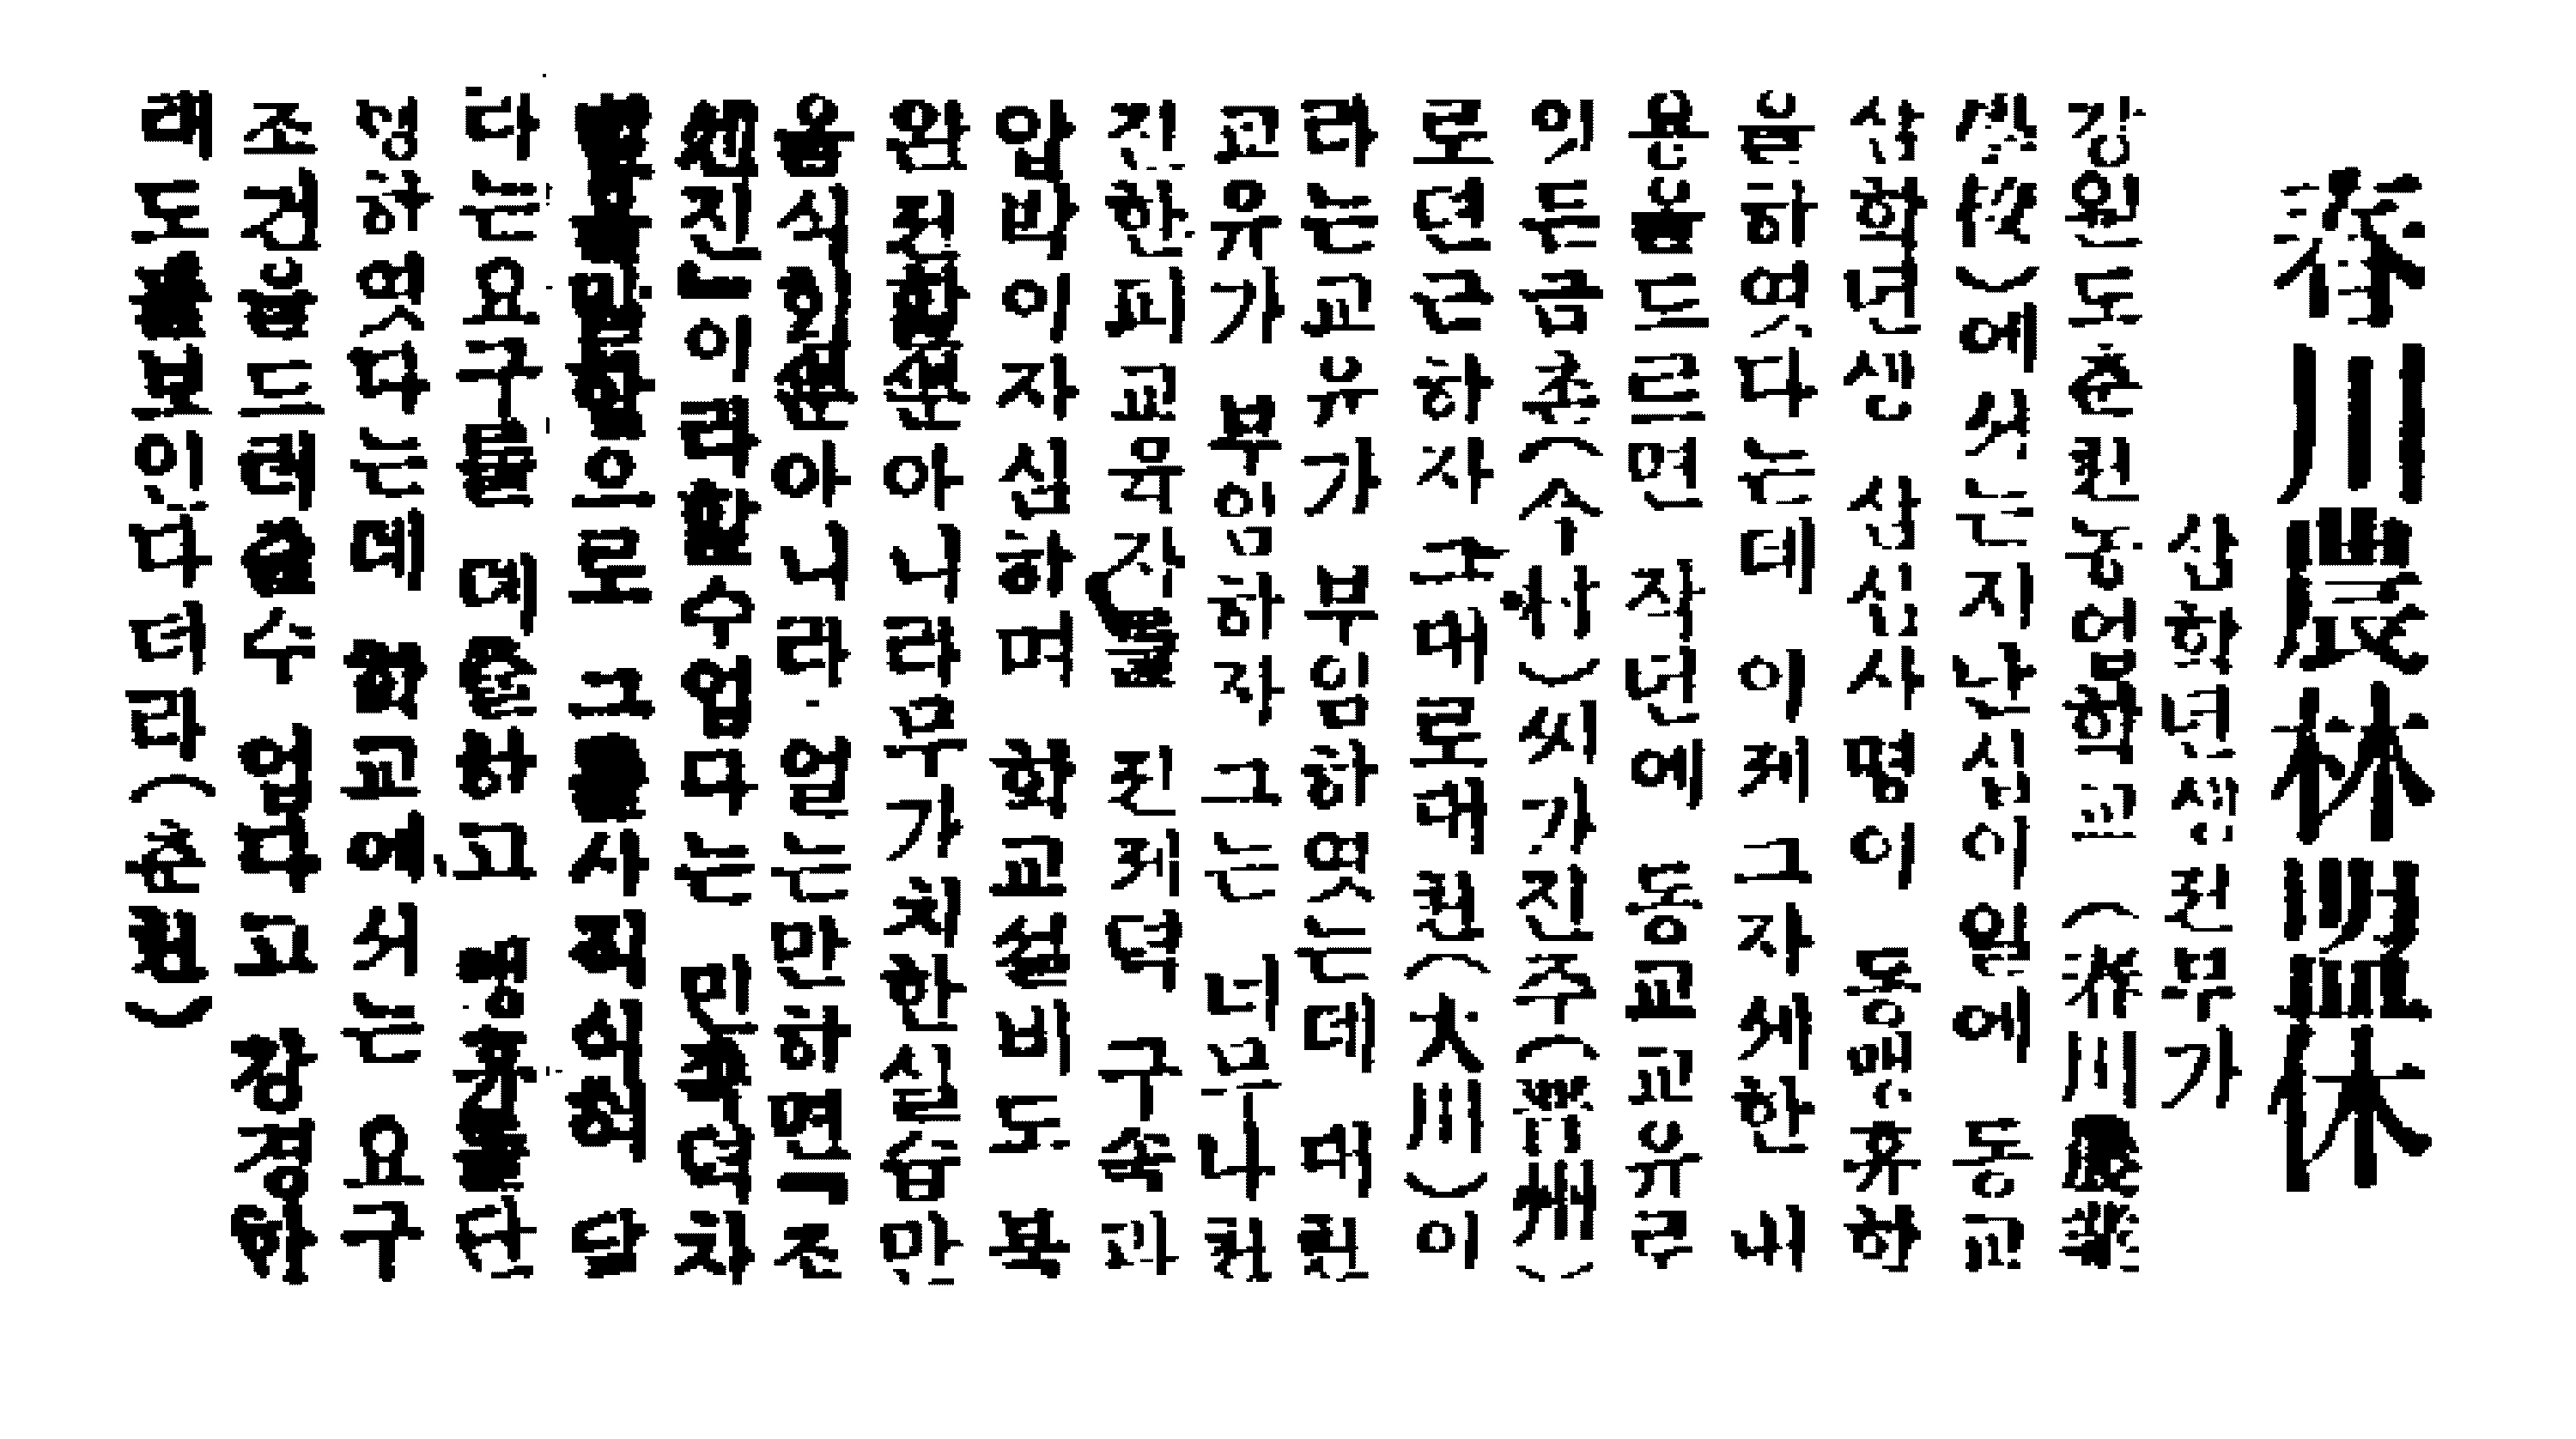 春川農林盟休
삼학년생전부가
강원도춘천농업학교(春川農業
學校)에서는지난십이일에 동교
삼학년생 삼십사명이 동맹휴학
을하엿다는데 이제그자세한 내
용을드르면 작년에 동교교유로
잇든금촌(今村)씨가진주(晋州)
로뎐근하자 그대로대천(大川)이
라는교유가 부임하엿는데 대천
교유가 부임하자 그는 너무나천
진한피교육자를 진게덕 구속과
압박이자심하며 학교설비도 복
완전할뿐아니라무가치한실습만
음식힐뿐아니라 얼는만하면『조
센진』이라할수업다는 민족덕차
으로 그를사직식혀 달
다는요구를 뎨출하고 맹휴를단
성하엿다는데 학교에서는 요구
조건을드러줄수 업다고 강경하
래도를보인다더라(춘천)